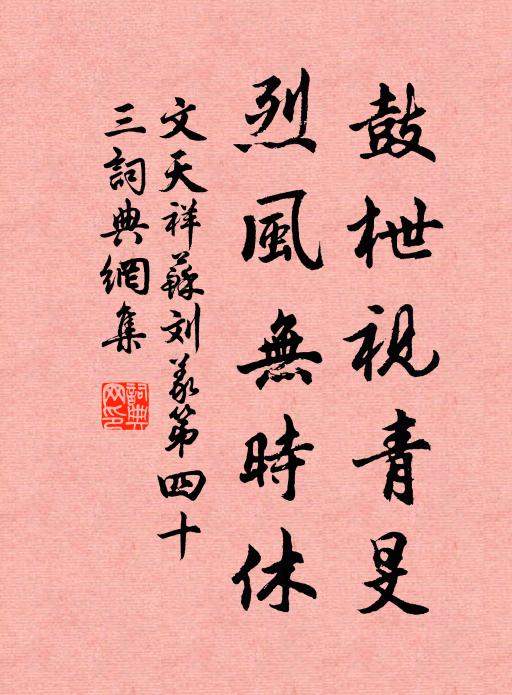 鼓枻視青旻
烈風無時休
文天祥蘇刘義第四十
三詞典網集
詞典網印